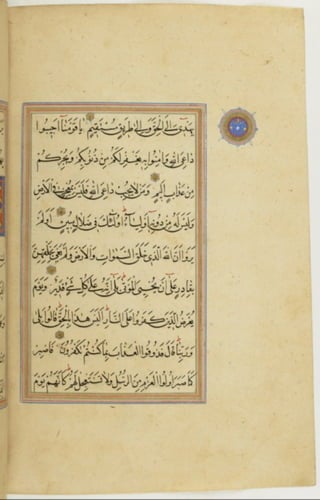 يهدى الى الحق والى طريق مستقيم يا قومنا اجيبوا
داعى الله وامنوا به يغفر لكم من ذنوبكم ويجركم
من عذاب اليم ومن لا يجب داعى الله فليس بمعجز فى الارض
وليس له من دونه اولياء اولئك فى ضلال مبين اولم
يروا ان الله الذى خلق السموات والارض ولم يعى بخلقهن
بقادر على ان يحيى الموتى بلى انه على كل شئ قدير ويوم
يعرض الذين كفروا على النار اليس هذا بالحق قالوا بلى
وربنا قال فذوقوا العذاب بما كنتم تكفرون فاصبر
كما صبر اولوا العزم من الرسل ولا تستعجل لهم كانهم يوم